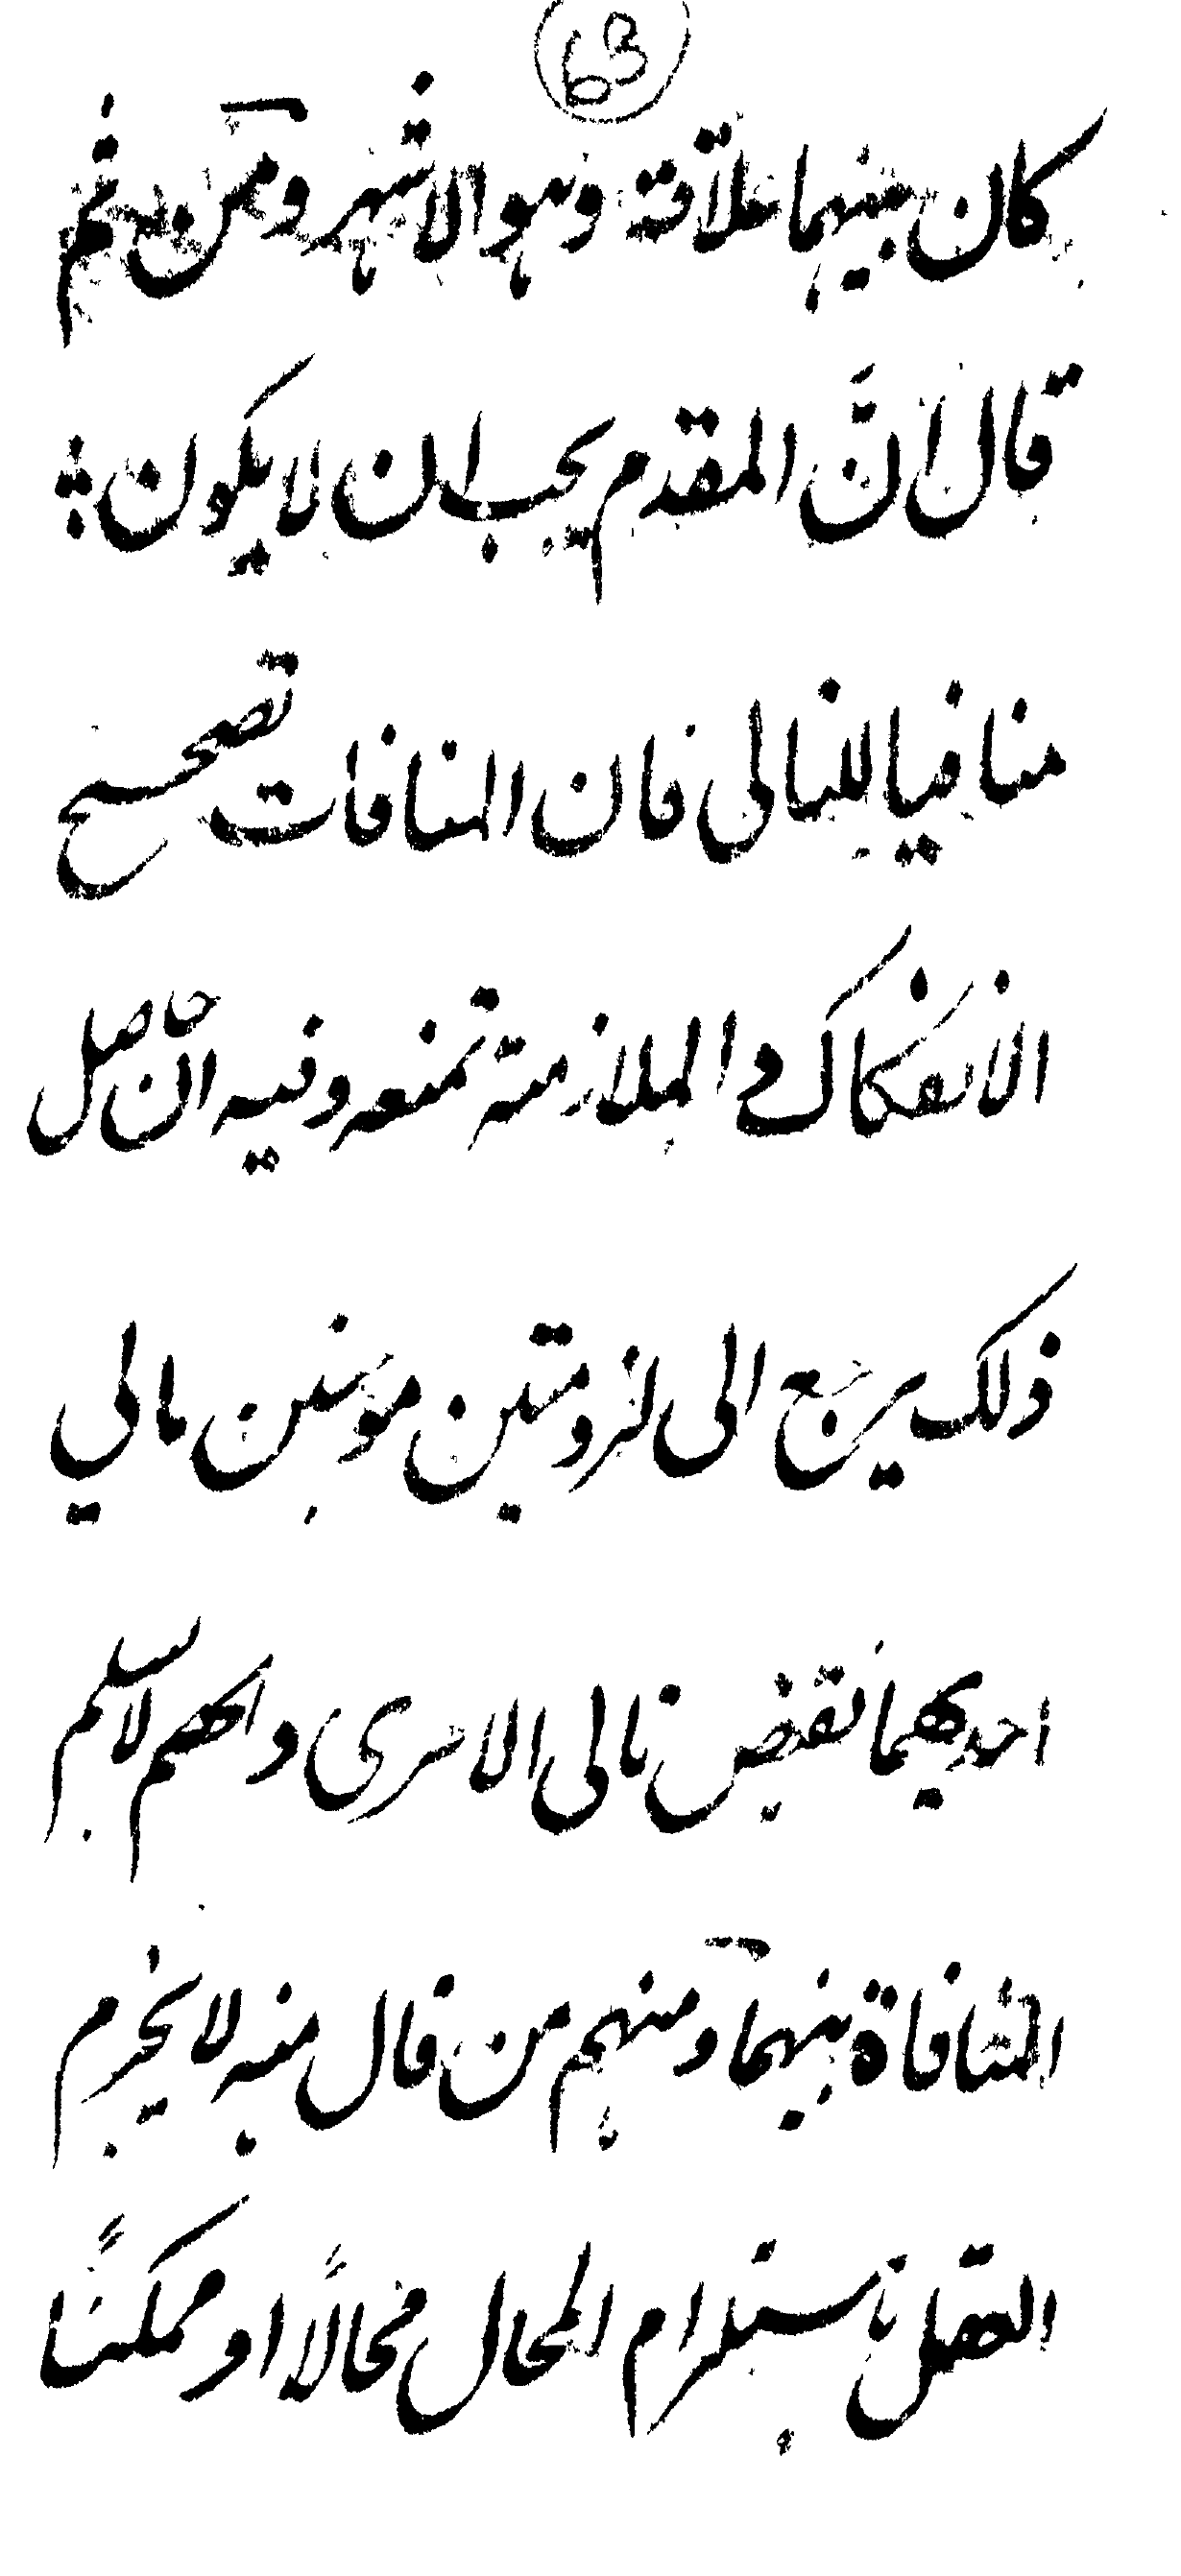 63
كان بينهما علاقة وهو الاشهر ومن ثم
قال انّ المقدم يجب ان لا يكون
منافيا للتالى فان المنافات تصحيح
الانفكاك والملازمة تمنعه وفيه ان حاصل
ذلك يرجع الى لزوميتين تالي
احديهما نقيض تالى الاخرى والخصم لا يسلم
المنافاة بينهما ومنهم من قال منه لا يجزم
العقل باستلزام المحال محالاً او ممكنًا